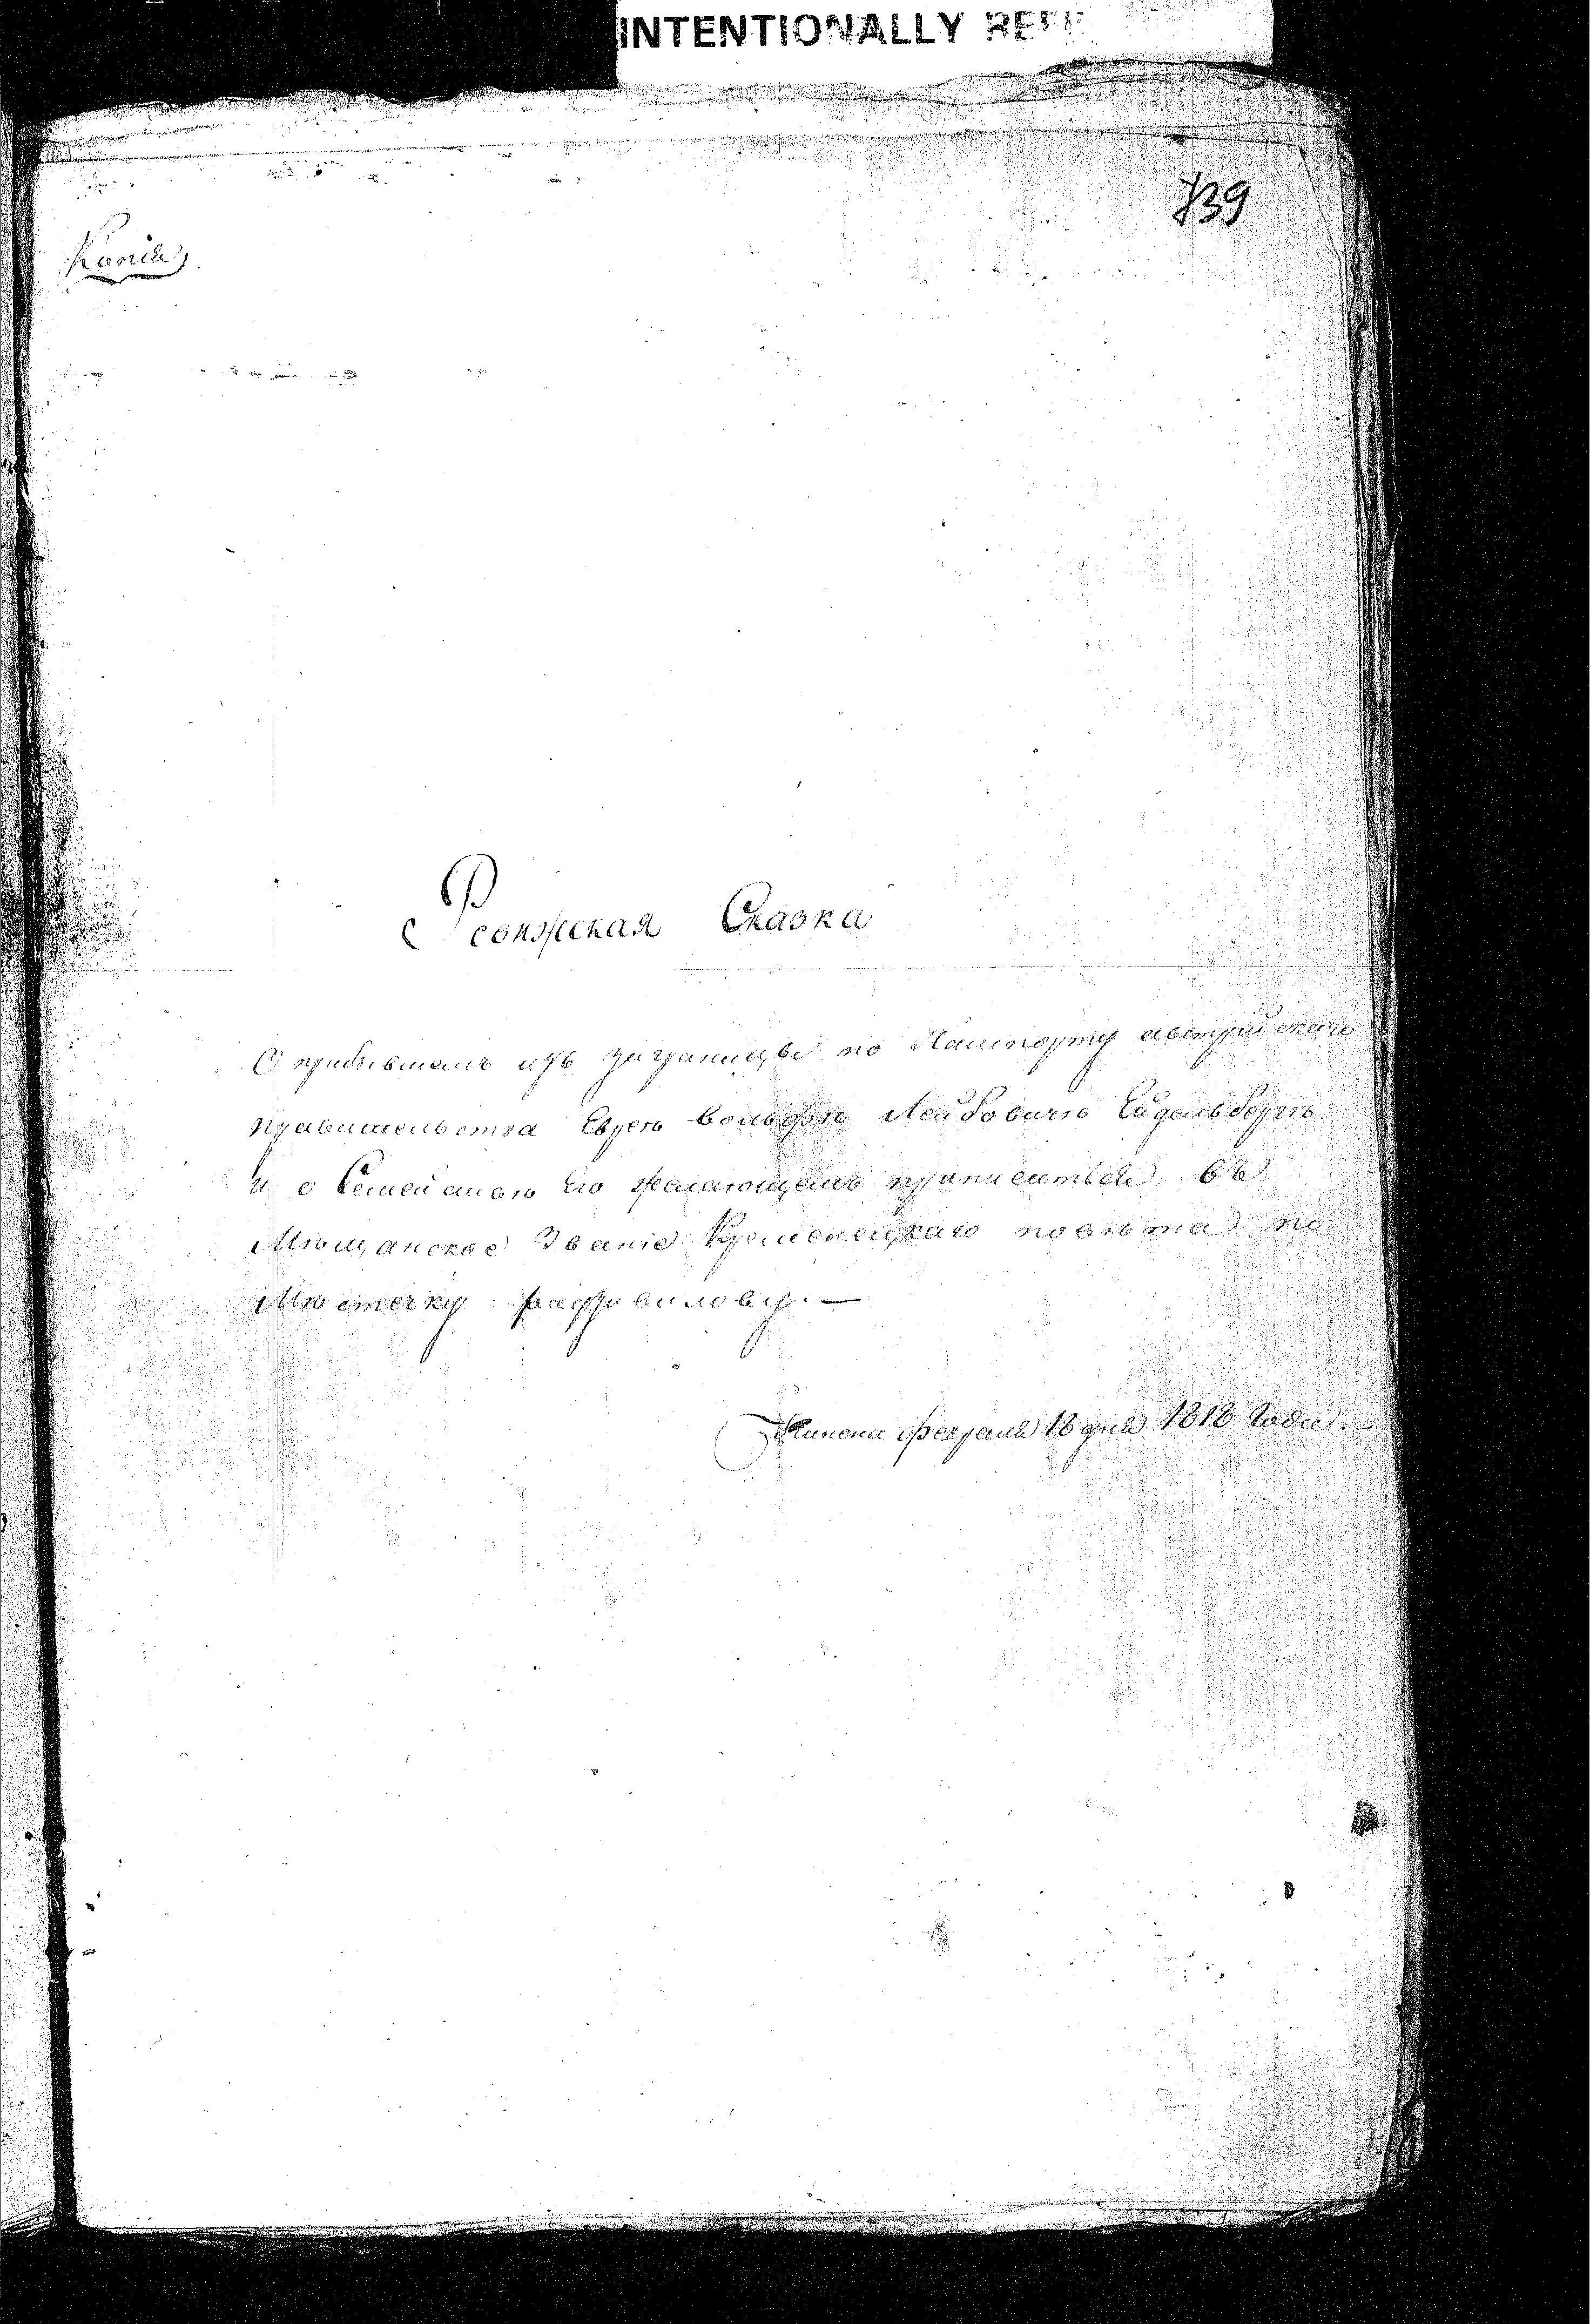 INTENTIONALLY REFI
739
Копія
Ревижская Сказка
О прибывшемъ изъ заграницы по Пашпорту австрийскаго
правительства Еврею Вольфѣ Лейбовичѣ Ейдельбергъ
и о Семействѣ Его желающемъ приписаться въ
Мѣщанское Званіе Кременецкаго повѣта по
Мѣстечку Радзивилову. —
Писана февраля 18 дня 1818 Года. —